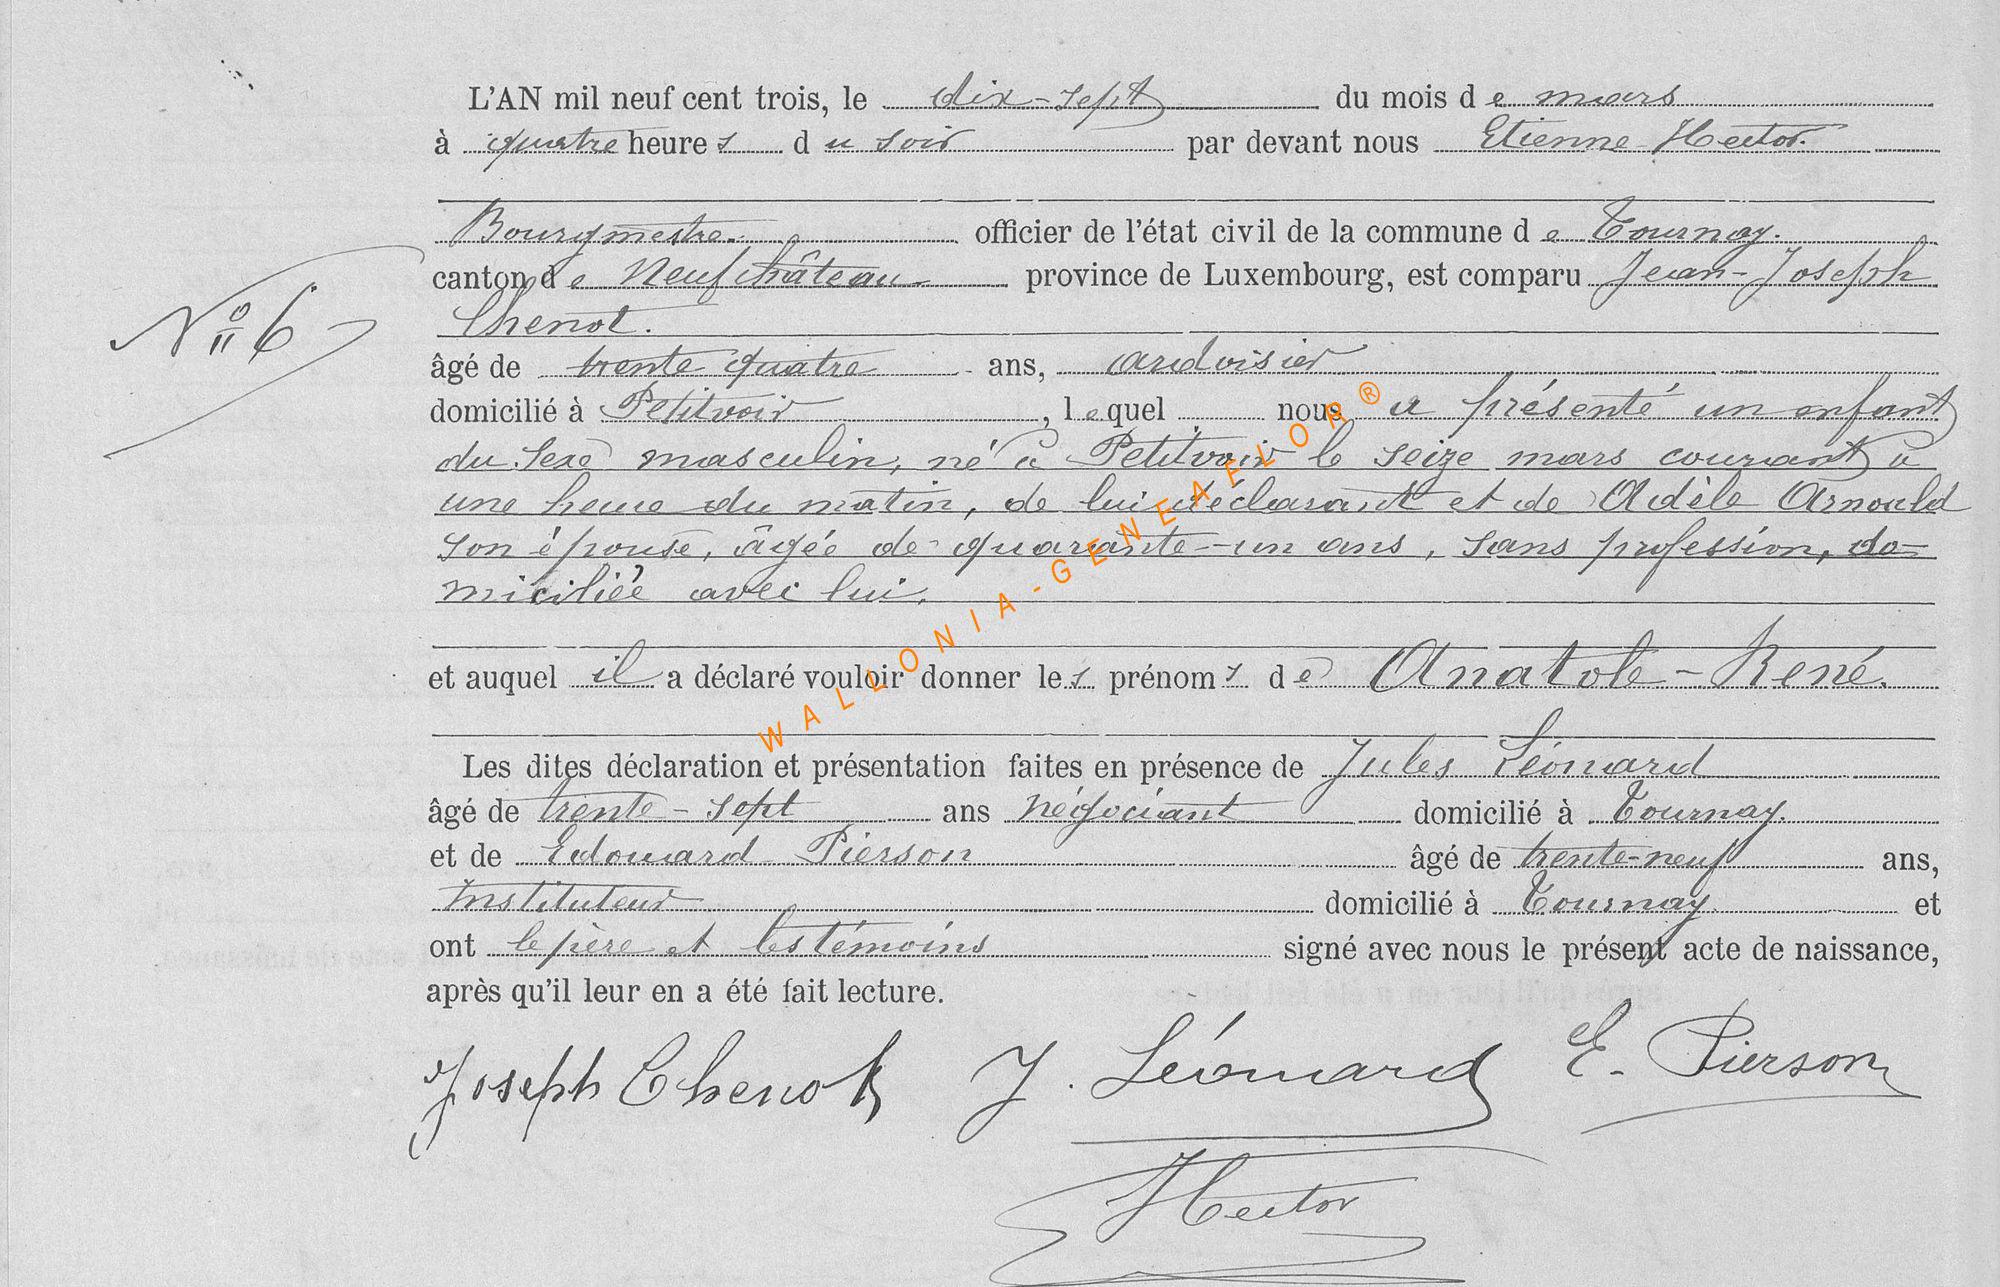 L'AN mil neuf cent trois, le dix-sept du mois de mars
à quatre heures du soir par devant nous Etienne Hector.
Bourgmestre. officier de l'état civil de la commune de Tournay.
canton de Neufchâteau. province de Luxembourg, est comparu Jean-Joseph
Chenot.
N° 6
âgé de trente quatre ans, ardoisier
domicilié à Petitvoir, lequel nous a présenté un enfant
du sexe masculin, né à Petitvoir le seize mars courant à
une heure du matin, de lui déclarant et de Adèle Arnould
son épouse, âgée de quarante-un ans, sans profession, do=
miciliée avec lui.
et auquel il a déclaré vouloir donner les prénoms de Anatole-René.
Les dites déclaration et présentation faites en présence de Jules Léonard
âgé de trente-sept ans négociant domicilié à Tournay.
et de Edouard Pierson âgé de trente-neuf ans,
instituteur domicilié à Tournay. et
ont le père et les témoins signé avec nous le présent acte de naissance,
après qu'il leur en a été fait lecture.
Joseph Chenot J. Léonard E. Pierson
Hector
WALLONIA-GENEAELOR®